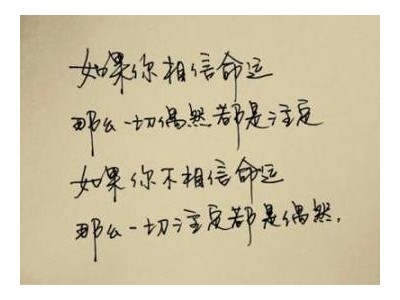 如果你相信命运
那么一切偶然都是注定
如果你不相信命运
那么一切注定都是偶然.